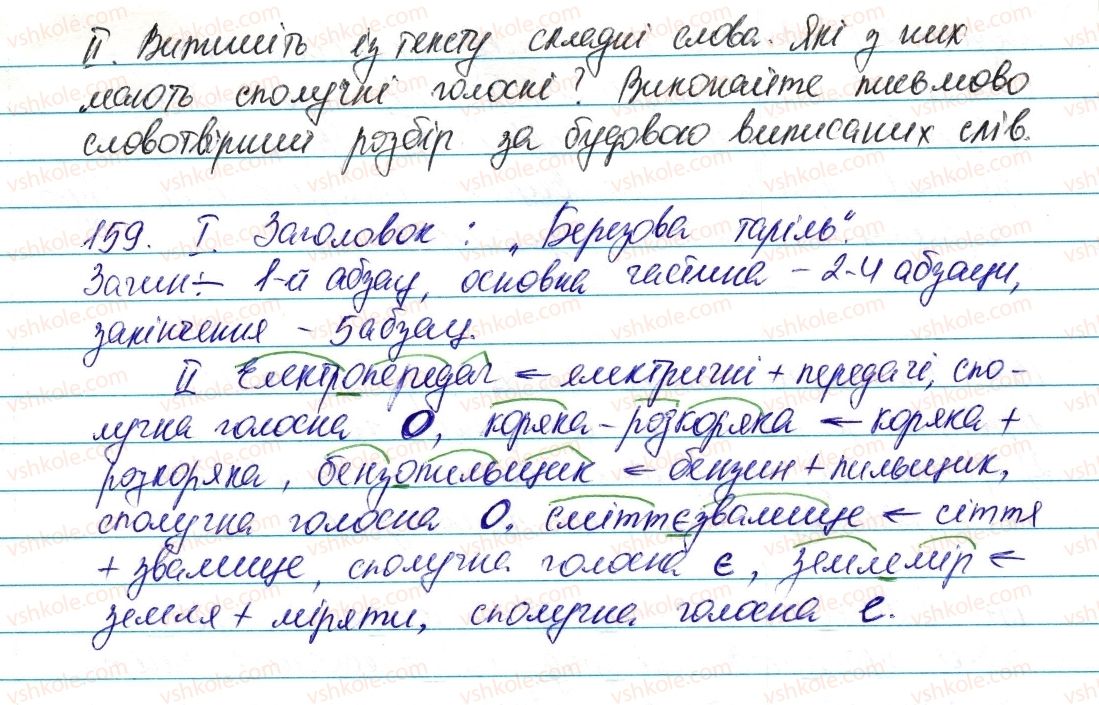 ІІ. Випишіть із тексту складні слова. Які з них
мають сполучні голосні? Виконайте письмово
словотвірний розбір за будовою виписаних слів.
159. І. Заголовок: „Березова таріль".
Зачин – 1-й абзац, основна частина – 2-4 абзаци,
закінчення – 5 абзац.
ІІ Електропередач ← електричні + передачі, спо-
лучна голосна О, коряка-розкоряка ← коряка +
розкоряка, бензопильщик ← бензин + пильщик,
сполучна голосна О, сміттєзвалище ← сіття
+ звалище, сполучна голосна є, землемір ←
земля + міряти, сполучна голосна е.